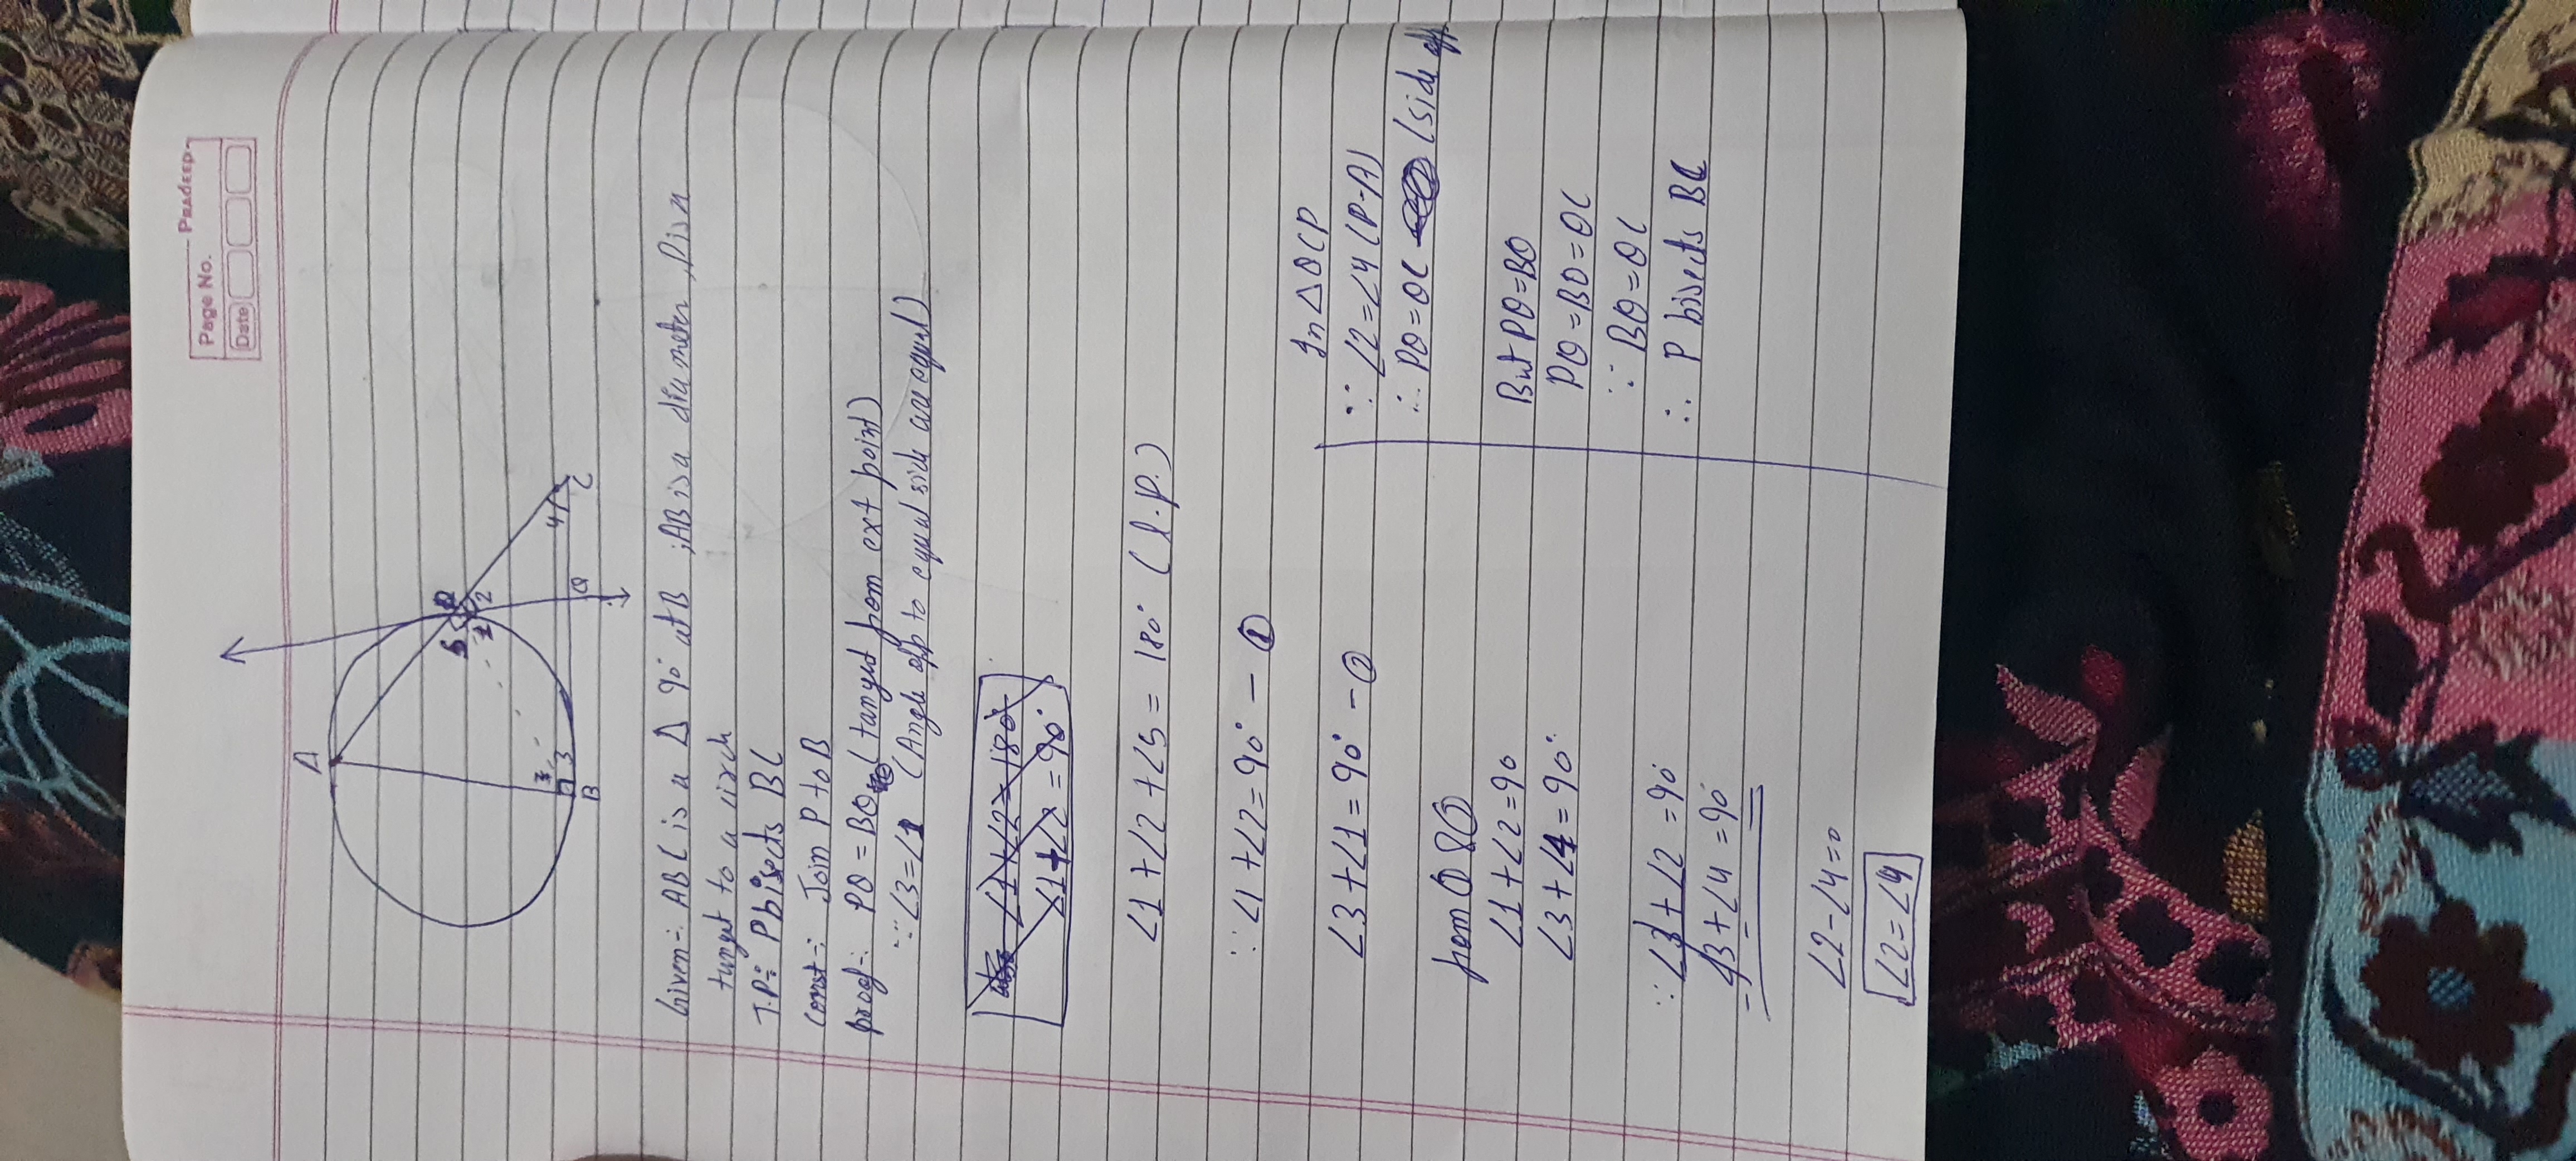 Page No.
PRADEEP
Date
A
5
2
1
Q
4
C
3
B
Given:- ABC is a Δ 90° at B ; AB is a diameter , P is a
tanget to a circh
T.P:- P bisects BC
Const:- Join P to B
proof:- PQ = BQ (tanged from ext point)
∵ ∠3 = ∠1 (Angle opp to equal side are equal)
∠1+∠2=180°
∠1+∠2 = 90°
∠1 + ∠2 + ∠5 = 180° (l.p.)
∵ ∠1 + ∠2 = 90° - ①
∠3 + ∠1 = 90° - ②
from ① & ②
∠1 + ∠2 = 90
∠3 + ∠4 = 90°
∵ ∠3 + ∠2 = 90°
∠3 + ∠4 = 90°
- - -
∠2 - ∠4 = 0
∠2 = ∠4
In Δ QCP
∵ ∠2 = ∠4 (P.A)
∴ PQ = QC (side opp
But PQ = BQ
PQ = BQ = QC
∵ BQ = QC
∴ P bisects BC